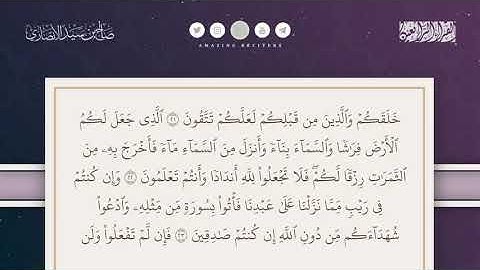 صالح بن سعيد الأنصاري
AMAZING RECITERS
خَلَقَكُمْ وَٱلَّذِينَ مِن قَبْلِكُمْ لَعَلَّكُمْ تَتَّقُونَ ٢١ ٱلَّذِى جَعَلَ لَكُمُ
ٱلْأَرْضَ فِرَٰشًا وَٱلسَّمَآءَ بِنَآءً وَأَنزَلَ مِنَ ٱلسَّمَآءِ مَآءً فَأَخْرَجَ بِهِۦ مِنَ
ٱلثَّمَرَٰتِ رِزْقًا لَّكُمْ ۖ فَلَا تَجْعَلُوا۟ لِلَّهِ أَندَادًا وَأَنتُمْ تَعْلَمُونَ ٢٢ وَإِن كُنتُمْ
فِى رَيْبٍ مِّمَّا نَزَّلْنَا عَلَىٰ عَبْدِنَا فَأْتُوا۟ بِسُورَةٍ مِّن مِّثْلِهِۦ وَٱدْعُوا۟
شُهَدَآءَكُم مِّن دُونِ ٱللَّهِ إِن كُنتُمْ صَٰدِقِينَ ٢٣ فَإِن لَّمْ تَفْعَلُوا۟ وَلَن